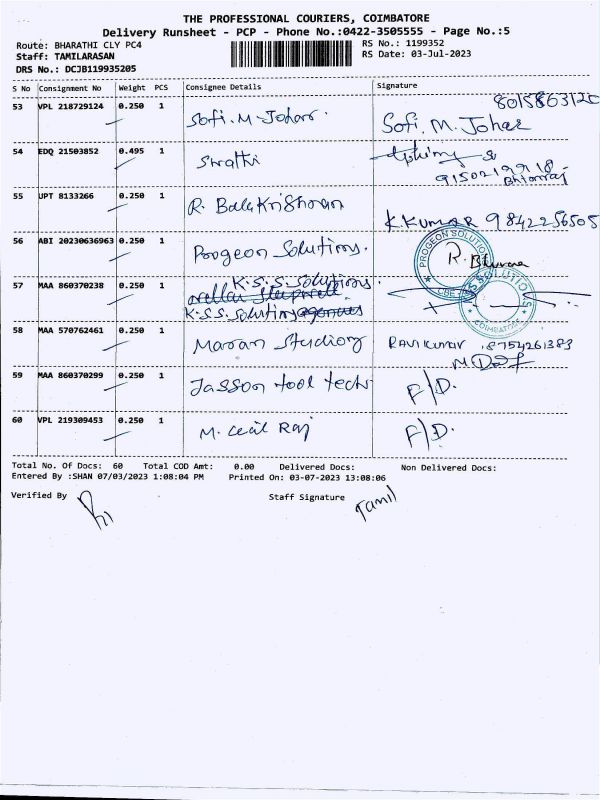 THE PROFESSIONAL COURIERS, COIMBATORE
Delivery Runsheet - PCP - Phone No.:0422-3505555 - Page No.:5
Route: BHARATHI CLY PC4
RS No.: 1199352
Staff: TAMILARASAN
RS Date: 03-Jul-2023
DRS No.: DCJB119935205
S No Consignment No Weight PCS Consignee Details Signature
8015863120
53 VPL 218729124 0.250 1 Sofi. M. Johar. Sofi. M. Johar
54 EDQ 21503852 0.495 1 Swathi
9150219918-
55 UPT 8133266 0.250 1 R. Balakrishnan
K.KUMAR 9842256505
56 ABI 20230636963 0.250 1 Progeon Solutions.
PROGEON SOLUTION
R. Bhuvana
57 MAA 860370238 0.250 1 K.S.S. Solutions.
K.S.S. Solutions
COIMBATORE
58 MAA 570762461 0.250 1 Maran Studioy Ravi kumar 8754261383
59 MAA 860370299 0.250 1 Jasson tool techs F/D.
60 VPL 219309453 0.250 1 M. Cecil Raj F/D.
Total No. Of Docs: 60 Total COD Amt: 0.00 Delivered Docs: Non Delivered Docs:
Entered By :SHAN 07/03/2023 1:08:04 PM Printed On: 03-07-2023 13:08:06
Verified By Staff Signature Tamil